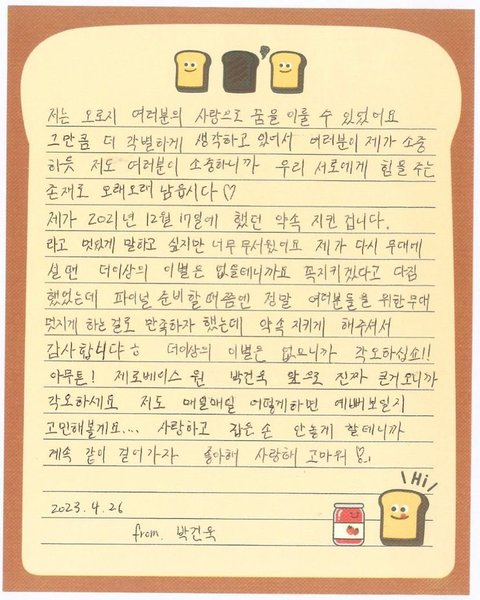 저는 오로지 여러분의 사랑으로 꿈을 이룰 수 있었어요
그만큼 더 각별하게 생각하고 있어서 여러분이 제가 소중
하듯 저도 여러분이 소중하니까 우리 서로에게 힘을 주는
존재로 오래오래 남읍시다♡
제가 2021년 12월 17일에 했던 약속 지킨 겁니다.
라고 멋있게 말하고 싶지만 너무 무서웠어요 제가 다시 무대에
설 땐 더이상의 이별은 없을테니까요 꼭지키겠다고 다짐
했었는데 파이널 준비할때쯤엔 정말 여러분들을 위한무대
멋지게 하는걸로 만족하자 했는데 약속 지키게 해주셔서
감사합니다ㅎ 더이상의 이별은 없으니까 각오하십쇼!!
아무튼! 제로베이스 원 박건욱 앞으로 진짜 큰거 오니까
각오하세요 저도 매일매일 어떻게하면 예뻐보일지
고민해볼게요.... 사랑하고 잡은 손 안놓게 할테니까
계속 같이 걸어가자 좋아해 사랑해 고마워
Hi
2023.4.26
from. 박건욱